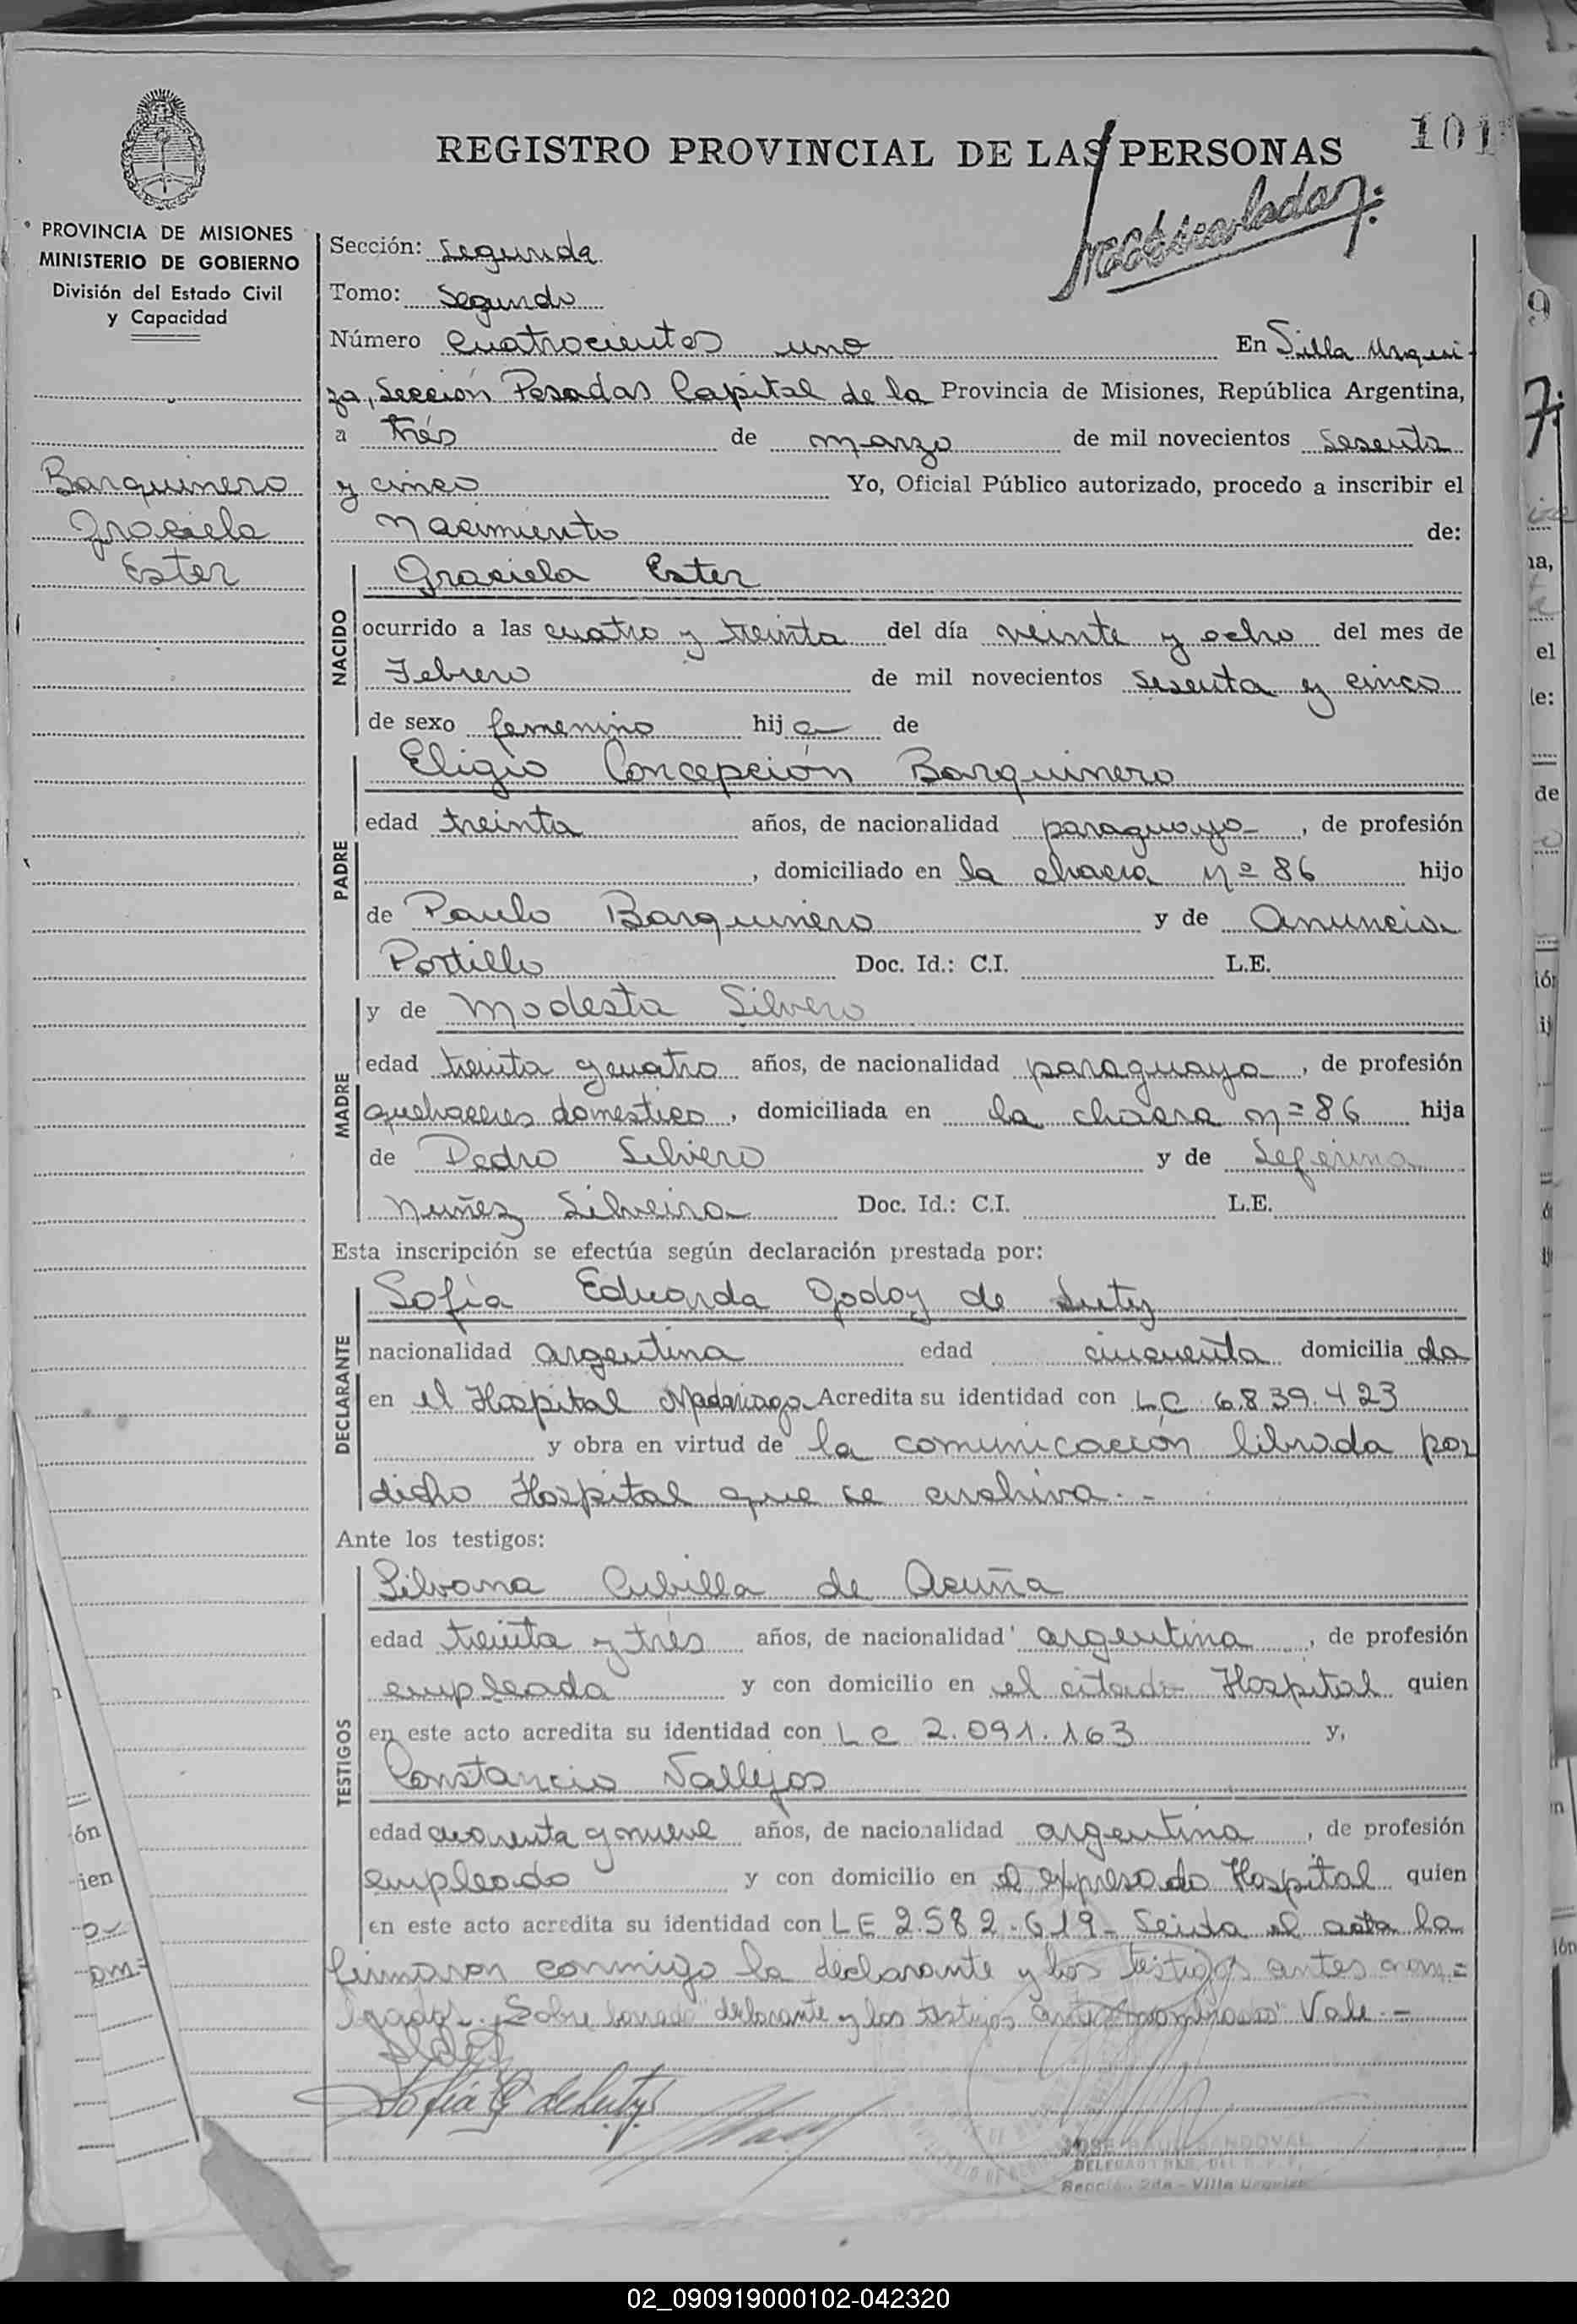 101
REGISTRO PROVINCIAL DE LAS PERSONAS
PROVINCIA DE MISIONES
MINISTERIO DE GOBIERNO
División del Estado Civil
y Capacidad
Barquinero
Graciela
Ester
Sección: Segunda
Tomo: Segundo
Número Cuatrocientos uno En Villa Urqui-
za, Sección Posadas Capital de la Provincia de Misiones, República Argentina,
a tres de marzo de mil novecientos sesenta
y cinco Yo, Oficial Público autorizado, procedo a inscribir el
Nacimiento de:
NACIDO
Graciela Ester
ocurrido a las cuatro y treinta del día veinte y ocho del mes de
Febrero de mil novecientos sesenta y cinco
de sexo femenino hija de
PADRE
Eligio Concepción Barquinero
edad treinta años, de nacionalidad paraguayo, de profesión
, domiciliado en la chacra Nº 86 hijo
de Paulo Barquinero y de Anuncia
Portillo Doc. Id.: C.I. L.E.
MADRE
y de Modesta Silvero
edad treinta y cuatro años, de nacionalidad paraguaya, de profesión
quehaceres domestico, domiciliada en la chacra n= 86 hija
de Pedro Silvero y de Seferina
Nuñez Silveira Doc. Id.: C.I. L.E.
Esta inscripción se efectúa según declaración prestada por:
DECLARANTE
Sofía Eduarda Godoy de
nacionalidad argentina edad cincuenta domiciliada
en el Hospital Madariaga Acredita su identidad con LC 6.839.423
y obra en virtud de la comunicación librada por
dicho Hospital que se archiva.-
Ante los testigos:
TESTIGOS
Silvana Cubilla de Acuña
edad treinta y tres años, de nacionalidad argentina, de profesión
empleada y con domicilio en el citado Hospital quien
en este acto acredita su identidad con LC 2.091.163 y,
Constancio Vallejos
edad cuarenta y nueve años, de nacionalidad argentina, de profesión
empleado y con domicilio en el expresado Hospital quien
en este acto acredita su identidad con LE 2.582.619- Leida el acta la
firmaron conmigo la declarante y los testigos antes nom=
brados. Sobre borrado "declarante y los testigos antes nombrados" Vale.-
Sofía G de
SANDOVAL
Sección 2da - Villa Urquiza
02_090919000102-042320